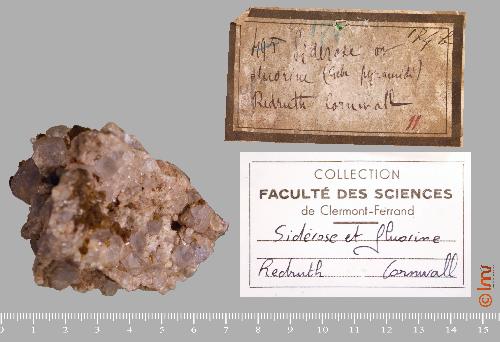 Sidérose
fluorine (Cube pyramidé)
Redruth Cornwall
11
COLLECTION
FACULTÉ DES SCIENCES
de Clermont-Ferrand
Sidérose et fluorine
Redruth Cornwall
© lmv
0 1 2 3 4 5 6 7 8 9 10 11 12 13 14 15